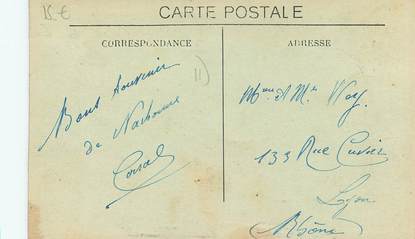 15 €
CARTE POSTALE
CORRESPONDANCE
ADRESSE
Bons souvenir
de Narbonne
Mme et Mr
133 Rue Cuvier
Lyon
Rhône